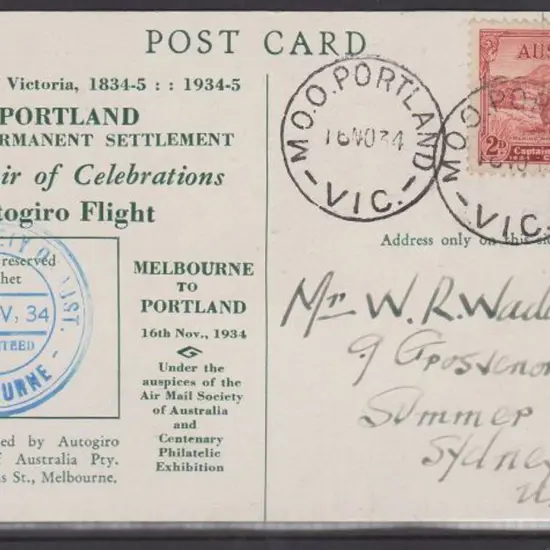 POST CARD
Victoria, 1834-5 : : 1934-5
PORTLAND
RMANENT SETTLEMENT
ir of Celebrations
togiro Flight
reserved
het
V, 34
TEED
URNE -
MELBOURNE
TO
PORTLAND
16th Nov., 1934
Under the
auspices of the
Air Mail Society
of Australia
and
Centenary
Philatelic
Exhibition
ed by Autogiro
f Australia Pty.
s St., Melbourne.
M.O.O. PORTLAND
16 NO 34
- VIC. -
AUS
2D
Captain
M.O.O. PO
- VIC.
Address only on this si
Mr W. R. Wade
9 Grosvenor
Summer
Sydney